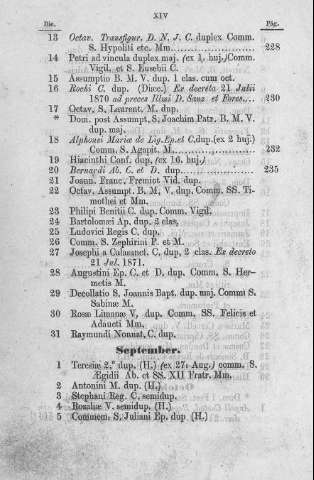 XIV
Die. Pág.
13 Octav. Transfigur. D. N. J. C. duplex Comm.
S. Hypoliti etc. Mm. 228
14 Petri ad vincula duplex maj. (ex 1. huj.) Comm.
Vigil. et S. Eusebii C.
15 Assumptio B. M. V. dup. 1 clas. cum oct.
16 Rochi C. dup. (Diœc.) Ex decreto 21 Julii
1870 ad preces Illmi D. Sanz et Fores. 230
17 Octav. S. Laurent. M. dup.
* Dom. post Assumpt. S. Joachim Patr. B. M. V.
dup. maj.
18 Alphonsi Mariæ de Lig. Ep. et C. dup. (ex 2 huj.)
Comm. S. Agapit. M. 232
19 Hiacinthi Conf. dup. (ex 16. huj.)
20 Bernardi Ab. C. et D. dup. 235
21 Joann. Franc. Fremiot Vid. dup.
22 Octav. Assumpt. B. M. V. dup. Comm. SS. Ti-
mothei et Mm.
23 Philipi Benitii C. dup. Comm. Vigil.
24 Bartolomæi Ap. dup. 2 clas.
25 Ludovici Regis C. dup.
26 Comm. S. Zephirini P. et M.
27 Josephi a Calasanct. C. dup. 2 clas. Ex decreto
21 Jul. 1871.
28 Augustini Ep. C. et D. dup. Comm. S. Her-
metis M.
29 Decollatio S. Joannis Bapt. dup. maj. Comm S.
Sabinæ M.
30 Rosæ Limanæ V. dup. Comm. SS. Felicis et
Adaucti Mm.
31 Raymundi Nonnat. C. dup.
September.
1 Teresiæ 2.ª dup. (H.) (ex 27. Aug.) comm. S.
Ægidii Ab. et SS. XII Fratr. Mm.
2 Antonini M. dup. (H.)
3 Stephani Reg. C. semidup.
4 Rosaliæ V. semidup. (H.)
5 Commem. S. Juliani Ep. dup (H.)